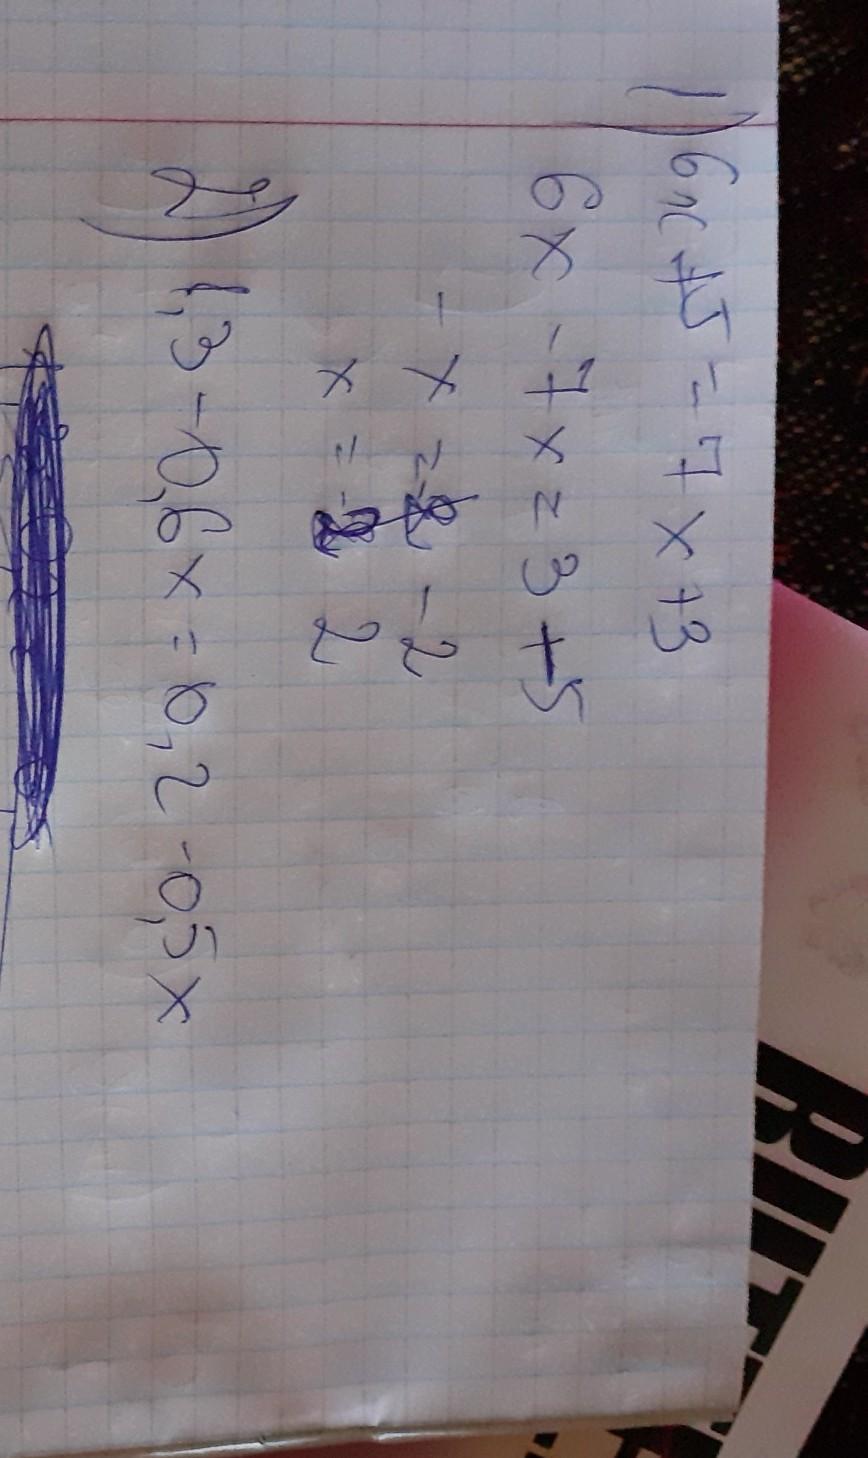 1) 6x + 5 = 7x + 3
6x - 7x = 3 + 5
- x = - 2
x = 2
2) 1,3 - 0,6x = 0,2 - 0,5x